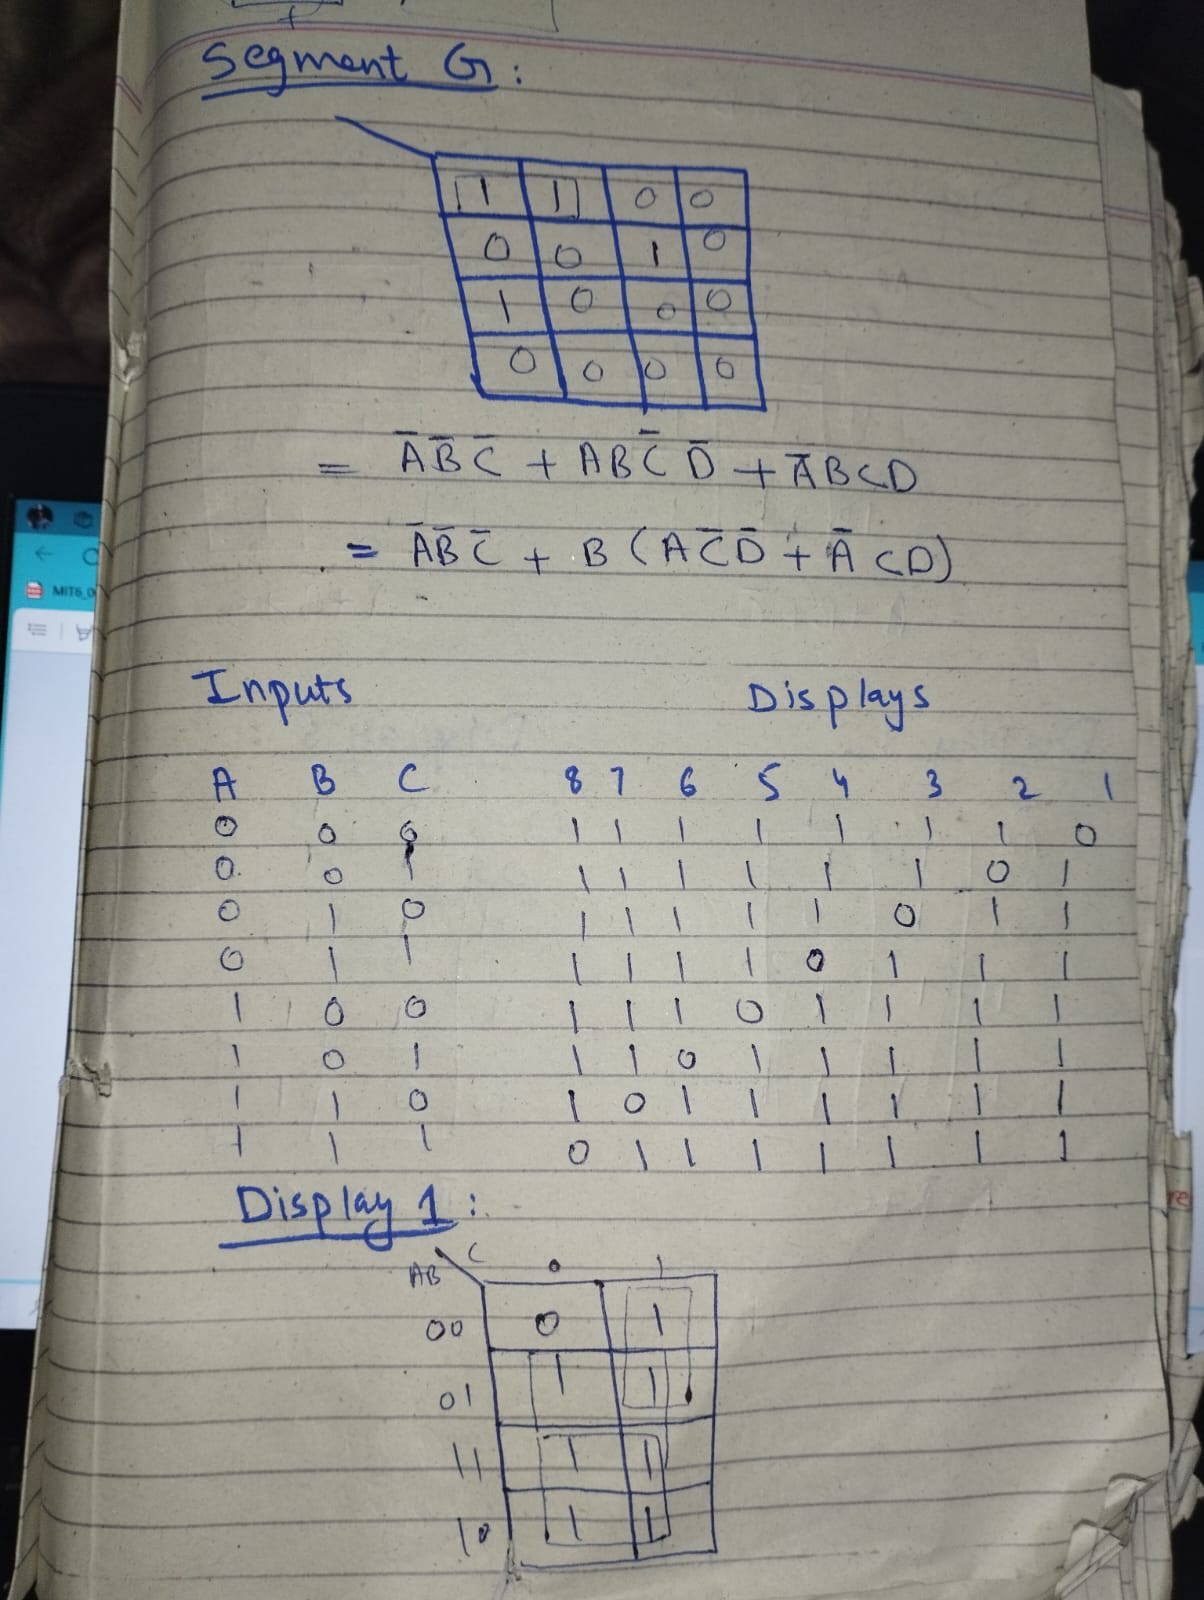 Segment G:
1 1 0 0
0 0 1 0
1 0 0 0
0 0 0 0
= A̅ B̅ C̅ + A B C̅ D̅ + A̅ B C D
= A̅ B̅ C̅ + B ( A C̅ D̅ + A̅ C D )
MIT6_0
Inputs Displays
A B C 8 7 6 5 4 3 2 1
0 0 0 1 1 1 1 1 1 1 0
0 0 1 1 1 1 1 1 1 0 1
0 1 0 1 1 1 1 1 0 1 1
0 1 1 1 1 1 1 0 1 1 1
1 0 0 1 1 1 0 1 1 1 1
1 0 1 1 1 0 1 1 1 1 1
1 1 0 1 0 1 1 1 1 1 1
1 1 1 0 1 1 1 1 1 1 1
Display 1:
AB C 0 1
00 0 1
01 1 1
11 1 1
10 1 1